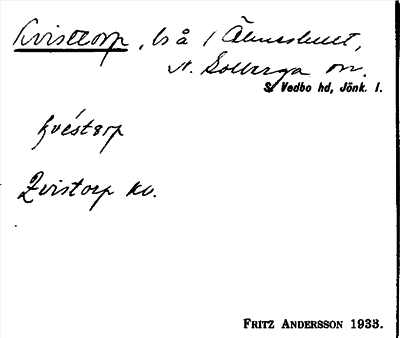 Kvisttorp, ls å / Älmeshult,
N. Solberga sn.
S. Vedbo hd, Jönk. l.
kvéstårp
Qvistorp kv.
FRITZ ANDERSSON 1933.